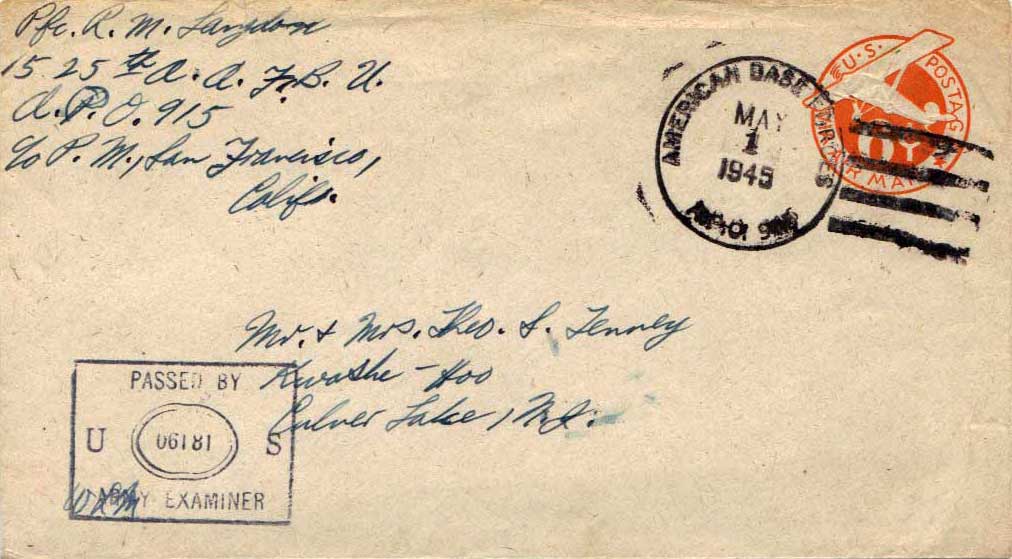 Pfc. R. M. Langdon
1525th A. A. F. B. U.
A.P.O. 915
c/o P. M., San Francisco,
Calif.
AMERICAN BASE FORCES
MAY
1
1945
A.P.O.
U.S. POSTAGE
AIR MAIL
Mr. & Mrs. Theo. S. Tenney
Kwashe-Hoo
Culver Lake, N.J.
PASSED BY
U 06181 S
ARMY EXAMINER